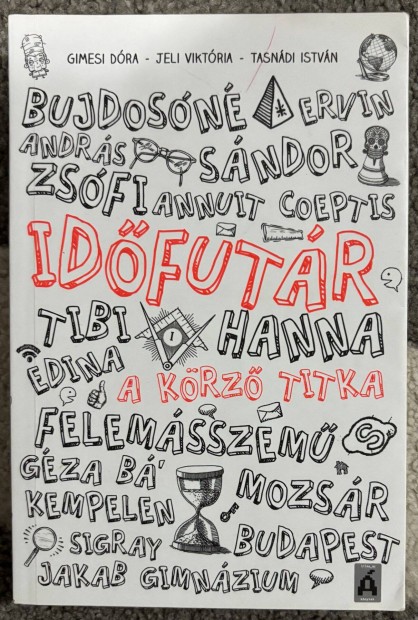 GIMESI DÓRA - JELI VIKTÓRIA - TASNÁDI ISTVÁN
BUJDOSÓNÉ ERVIN
ANDRÁS SÁNDOR
ZSÓFI ANNUIT COEPTIS
IDŐFUTÁR
TIBI HANNA
EDINA
A KÖRZŐ TITKA
FELEMÁSSZEMŰ
GÉZA BÁ'
KEMPELEN MOZSÁR
SIGRAY BUDAPEST
JAKAB GIMNÁZIUM